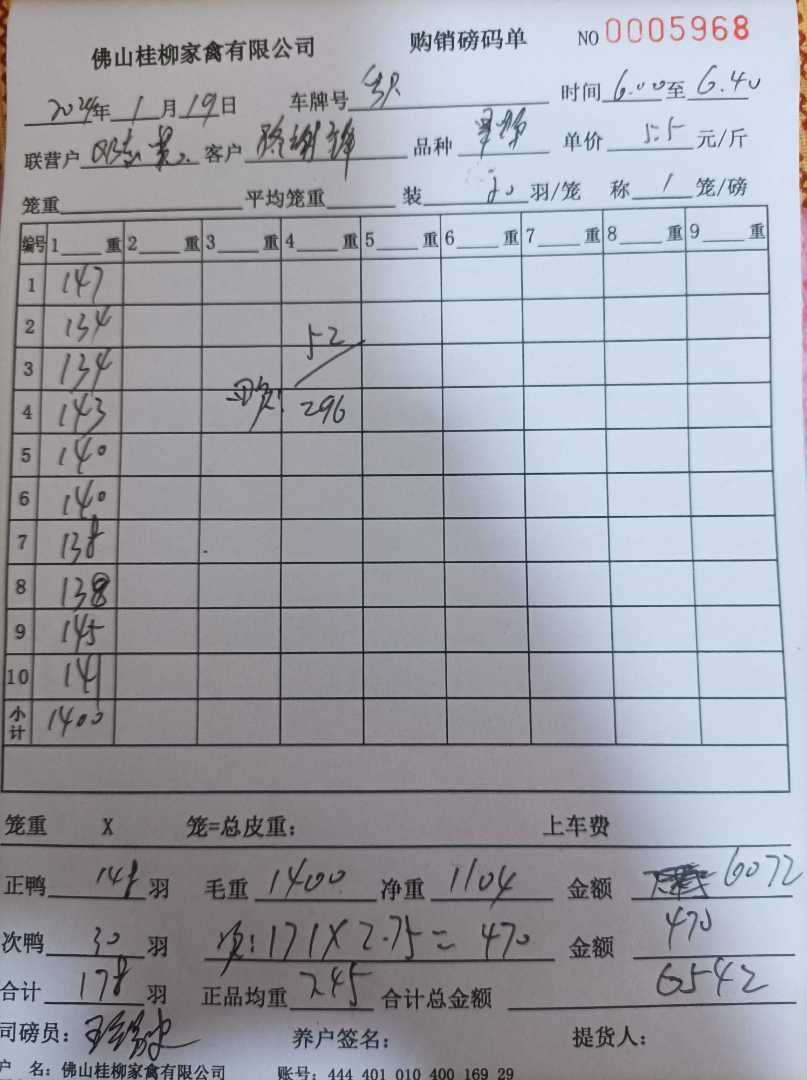 佛山桂柳家禽有限公司 购销磅码单 NO 0005968
2024年 1 月 19 日 车牌号 时间 6.00 至 6.40
联营户 客户 品种 单价 5.5 元/斤
笼重 平均笼重 装 20 羽/笼 称 1 笼/磅
编号 1 重 2 重 3 重 4 重 5 重 6 重 7 重 8 重 9 重
1 147
2 134 52
3 134
4 143 296
5 140
6 140
7 138
8 138
9 145
10 141
小计 1400
笼重 X 笼=总皮重: 上车费
正鸭 148 羽 毛重 1400 净重 1104 金额 6072
次鸭 30 羽 次: 171X2.75=470 金额 470
合计 178 羽 正品均重 7.45 合计总金额 6542
司磅员: 养户签名: 提货人:
户 名: 佛山桂柳家禽有限公司 账号: 444 401 010 400 169 29